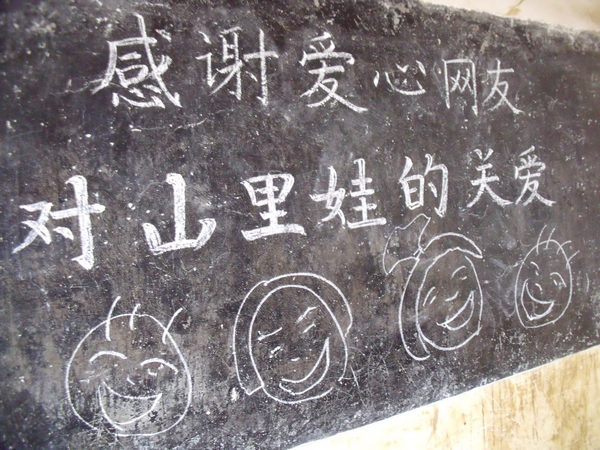 感谢爱心网友
对山里娃的关爱